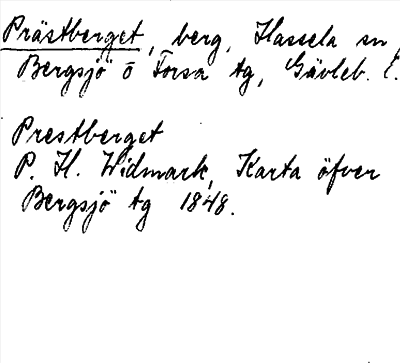 Prästberget, berg, Hassela sn,
Bergsjö o Forsa tg, Gävleb. l.
Prestberget
P. H. Widmark, Karta öfver
Bergsjö tg 1848.